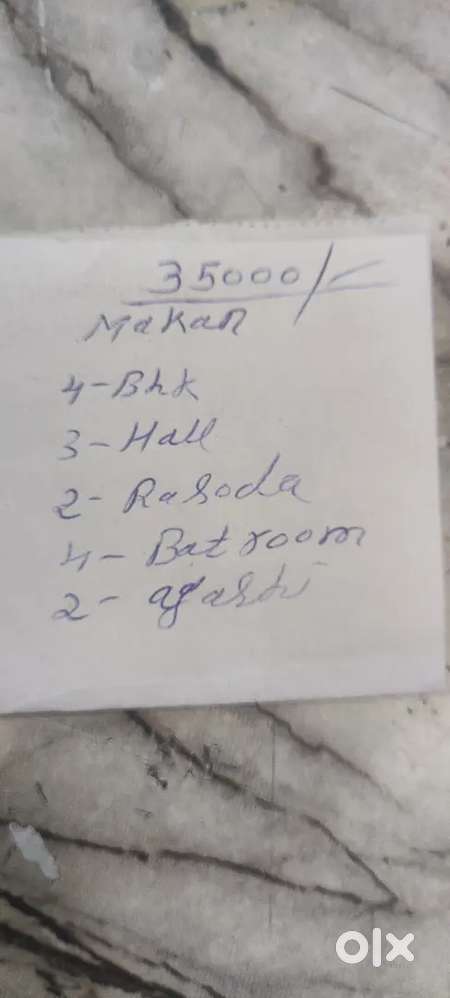 35000/-
Makan
4-Bhk
3-Hall
2-Rasoda
4-Batroom
2-agashi
olx